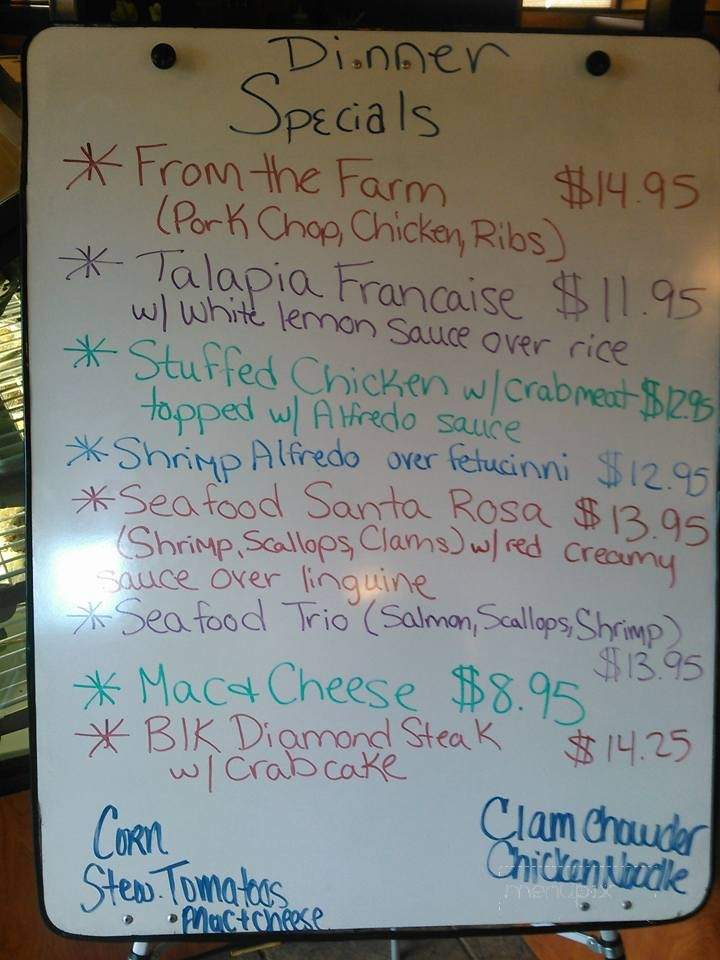 Dinner
Specials
* From the Farm $14.95
(Pork Chop, Chicken, Ribs)
* Talapia Francaise $11.95
w/ White lemon Sauce over rice
* Stuffed Chicken w/ crabmeat $12.95
topped w/ Alfredo sauce
* Shrimp Alfredo over fetucinni $12.95
* Seafood Santa Rosa $13.95
(Shrimp, Scallops, Clams) w/ red creamy
sauce over linguine
* Seafood Trio (Salmon, Scallops, Shrimp)
$13.95
* Mac + Cheese $8.95
* Blk Diamond Steak $14.25
w/ Crab cake
Corn
Stew. Tomatoes
Mac + cheese
Clam Chowder
Chicken Noodle
menupix